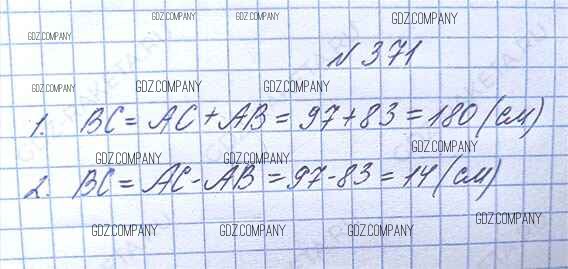 GDZ.COMPANY GDZ.COMPANY GDZ.COMPANY
GDZ.COMPANY
№ 371
GDZ.COMPANY GDZ.COMPANY GDZ.COMPANY
1. BC = AC + AB = 97 + 83 = 180 (см)
GDZ.COMPANY GDZ.COMPANY GDZ.COMPANY
2. BC = AC - AB = 97 - 83 = 14 (см)
GDZ.COMPANY GDZ.COMPANY GDZ.COMPANY GDZ.COMPANY